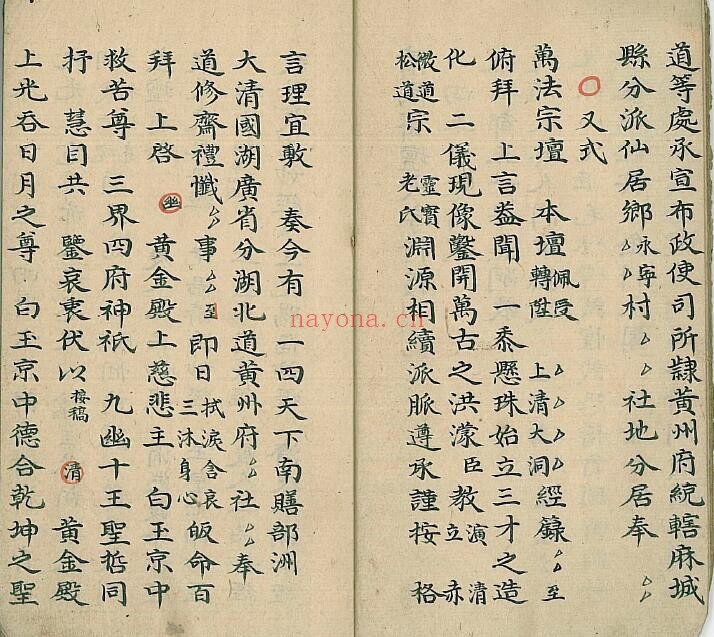 道等處承宣布政使司所隸黃州府統轄麻城
縣分派仙居鄉永寧村厶厶社地分居奉厶厶
○又式
萬法宗壇 本壇佩受轉陞厶厶厶上清大洞經籙厶厶至
俯拜 上言蓋聞 一黍懸珠始立三才之造
化 二儀現像鑿開萬古之洪濛臣教演清立赤
微道松道宗靈寶老氏淵源相續派脈遵承謹按 格
言理宜敷 奏今有 一四天下南贍部洲
大清國湖廣省分湖北道黃州府厶厶社厶厶奉
道修齋禮懺厶厶事厶至即日拭淚含哀三沐身心皈命百
拜 上啓 幽 黃金殿上慈悲主 白玉京中
救苦尊 三界四府神祇 九幽十王聖哲同
抒 慧目共 鑒哀衷伏以接稿 清 黃金殿
上光吞日月之尊 白玉京中德合乾坤之聖
nayona.cn